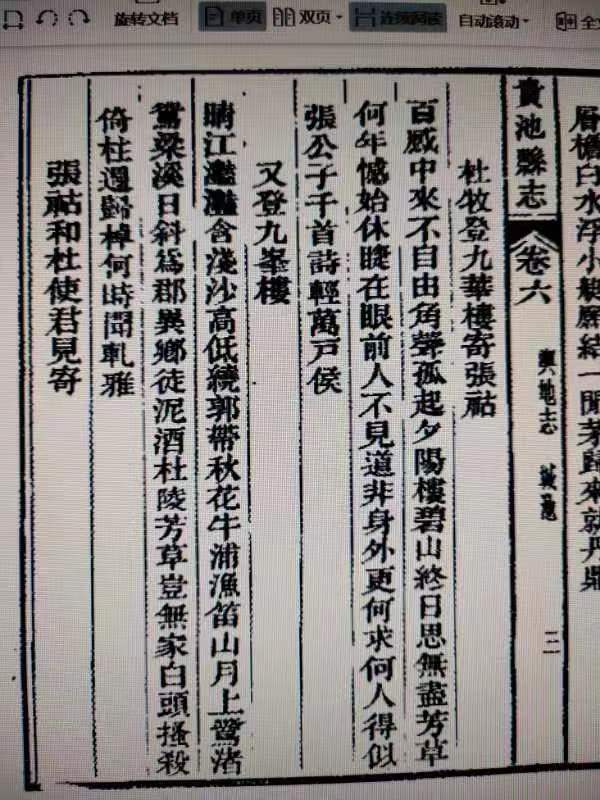 旋转文档 单页 双页 连续阅读 自动滚动
白水浮小艇願結一間茅歸來就丹鼎
貴池縣志 卷六 輿地志 三
杜牧登九華樓寄張祜
百感中來不自由角聲孤起夕陽樓碧山終日思無盡芳草
何年憾始休睫在眼前人不見道非身外更何求何人得似
張公子千首詩輕萬戸侯
又登九峯樓
晴江灩灩含淺沙高低繞郭帶秋花牛浦漁笛山月上鷺渚
鶖梁溪日斜爲郡異鄉徒泥酒杜陵芳草豈無家白頭搔殺
倚柱遍歸棹何時聞軋雅
張祜和杜使君見寄